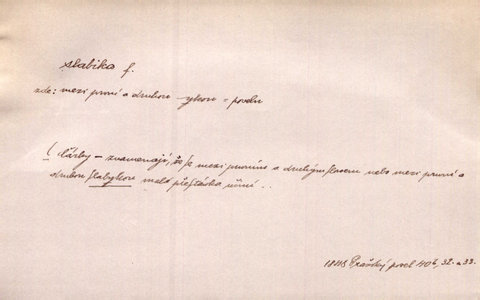 slabika f.
zde: mezi první a druhou -ykou = povelu
( čárky – znamenají, že se mezi prvním a druhým slovem nebo mezi první a
druhou slabykou malá přestávka učiní ..
1848 Pražský povel 40b, 32. a 33.